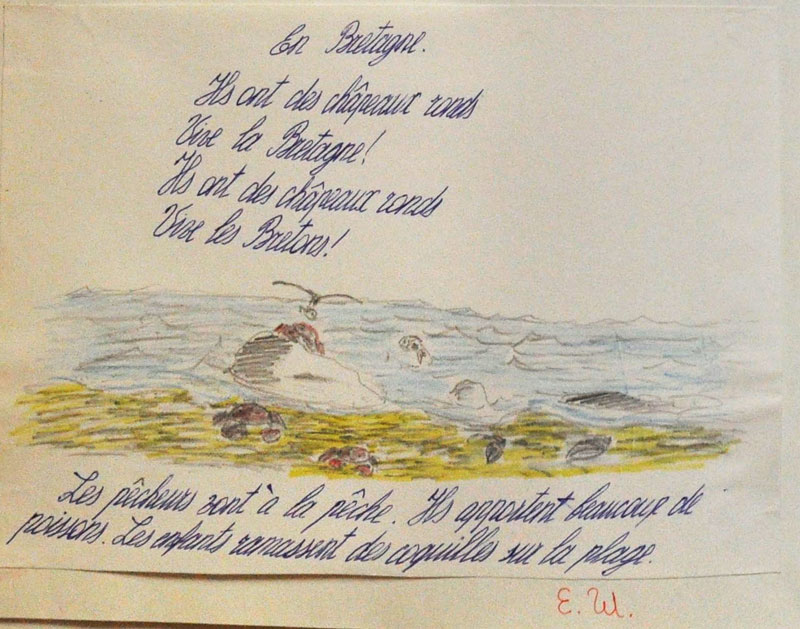 En Bretagne.
Ils ont des châpeaux ronds
Vive la Bretagne!
Ils ont des châpeaux ronds
Vive les Bretons!
Les pêcheurs vont à la pêche. Ils apportent beaucoup de
poissons. Les enfants ramassent des coquilles sur la plage.
E. W.